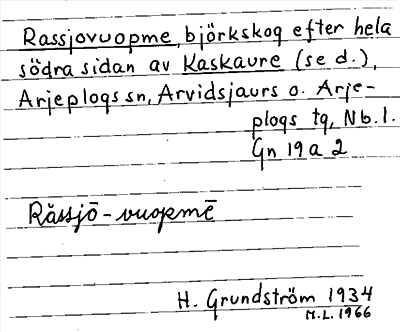 Rassjovuopme, björkskog efter hela
södra sidan av Kaskaure (se d.),
Arjeplogs sn, Arvidsjaurs o. Arje-
plogs tg, Nb. l.
Gn 19 a 2
Råssjō-vuopmē
H. Grundström 1934
M.L. 1966